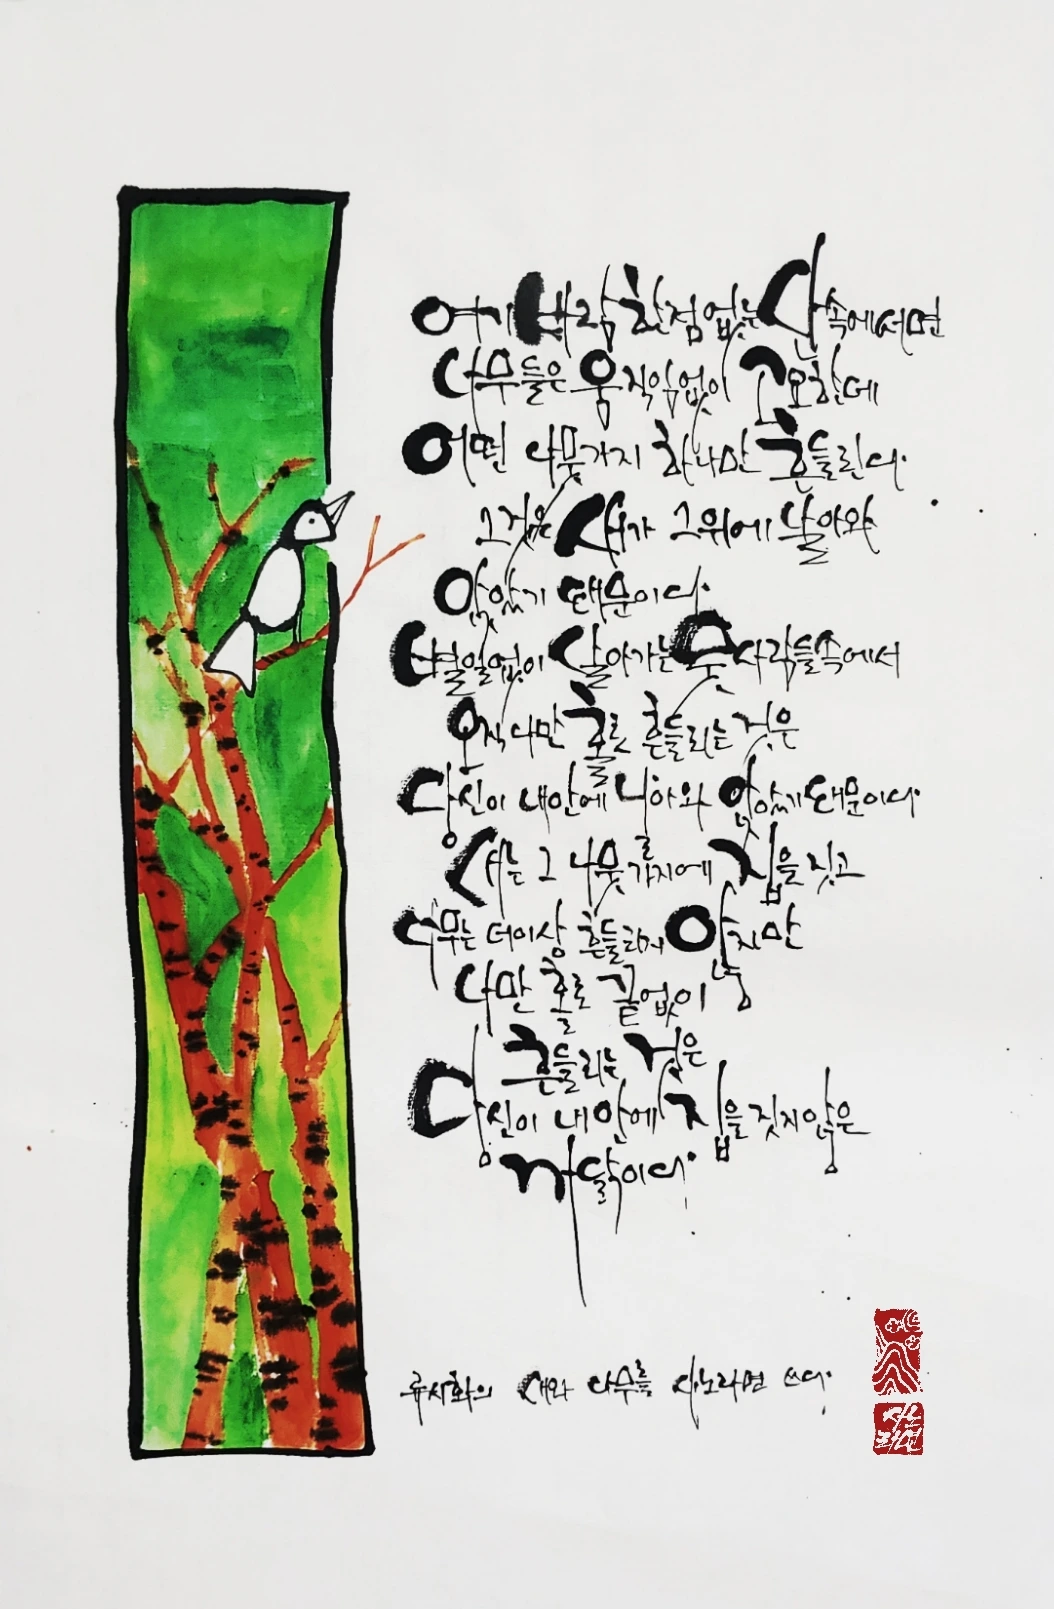 여기 바람 한점 없는 산속에 서면
나무들은 움직임 없이 고요한데
어떤 나뭇가지 하나만 흔들린다.
그것은 새가 그 위에 날아와
앉았기 때문이다.
별일없이 살아가는 뭇사람들 속에서
오직 나만 홀로 흔들리는 것은
당신이 내 안에 날아와 앉았기 때문이다.
새는 그 나뭇가지에 집을 짓고
나무는 더이상 흔들리지 않지만
나만 홀로 끝없이
흔들리는 것은
당신이 내 안에 집을 짓지 않은
까닭이다.
류시화의 새와 나무를 시노라면 쓰다.